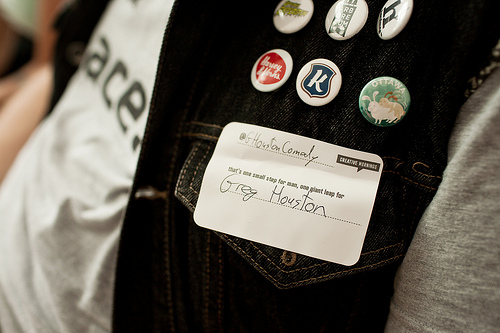 ace.
K
@GHoustonComedy
CREATIVE MORNINGS
that's one small step for man, one giant leap for
Greg Houston